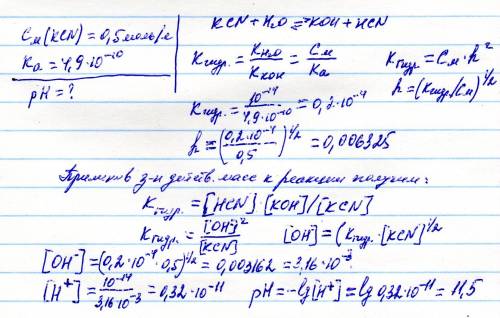 См(KCN) = 0,5 моль/л
Ka = 4,9·10⁻¹⁰
pH = ?
KCN + H₂O ⇄ KOH + HCN
Kгидр. = KH₂O/KKOH = См/Ka
Kгидр = См·h²
Kгидр. = 10⁻¹⁴/4,9·10⁻¹⁰ = 0,2·10⁻⁴
h = (Kгидр/См)^1/2
h = (0,2·10⁻⁴/0,5)^1/2 = 0,006325
Применив з-н действ. масс к реакции получим:
Kгидр. = [HCN]·[KOH]/[KCN]
Kгидр. = [OH⁻]²/[KCN] [OH⁻] = (Kгидр.·[KCN])^1/2
[OH⁻] = (0,2·10⁻⁴·0,5)^1/2 = 0,003162 = 3,16·10⁻³
[H⁺] = 10⁻¹⁴/3,16·10⁻³ = 0,32·10⁻¹¹ pH = -lg[H⁺] = lg 0,32·10⁻¹¹ = 11,5